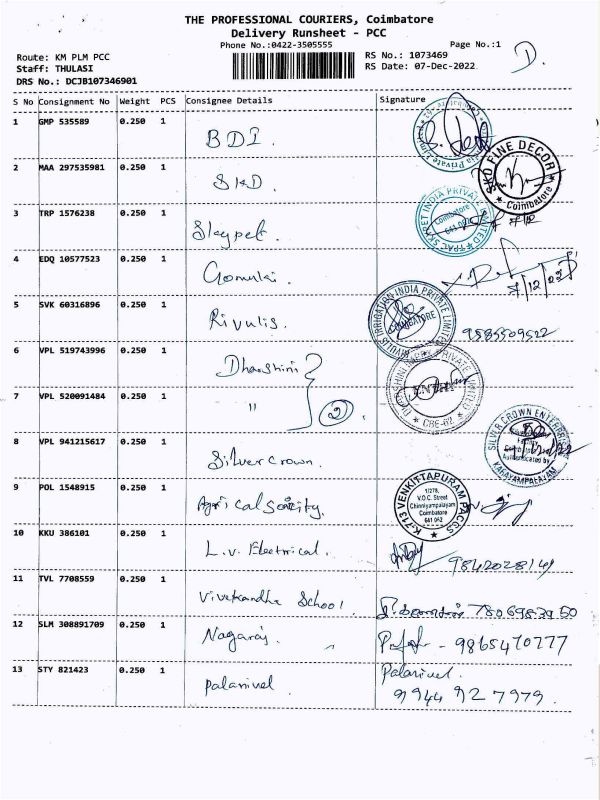 THE PROFESSIONAL COURIERS, Coimbatore
Delivery Runsheet - PCC
Phone No.:0422-3505555
Page No.:1
Route: KM PLM PCC
RS No.: 1073469
Staff: THULASI
RS Date: 07-Dec-2022
D.
DRS No.: DCJB107346901
S No Consignment No Weight PCS Consignee Details Signature
1 GMP 535589 0.250 1 BDI.
2 MAA 297535981 0.250 1 SKD.
SKD FINE DECOR
Coimbatore
3 TRP 1576238 0.250 1 Skypet.
INDIA PRIVATE LIMITED
Coimbatore
641 062
4 EDQ 10577523 0.250 1
7/12/22
5 SVK 60316896 0.250 1 Rivulis.
RIVULIS IRRIGATION INDIA PRIVATE LIMITED
COIMBATORE
9585509522
6 VPL 519743996 0.250 1 Dharshini
PRIVATE LIMITED
CBE-62
7 VPL 520091484 0.250 1 " 2.
8 VPL 941215617 0.250 1 Silver Crown.
SILVER CROWN ENTERPRISES
KARAYAMPALAYAM
9 POL 1548915 0.250 1
K-713 VENKITTAPURAM PACCS
1/278,
V.O.C. Street
Chinniyampalayam
Coimbatore
641 062
10 KKU 386101 0.250 1 L.V. Electrical.
9842028141
11 TVL 7708559 0.250 1 Vivekandha School.
12 SLM 308891709 0.250 1 Nagaraj. "
- 9865470777
13 STY 821423 0.250 1 Palanivel.
Palanivel.
9944 927979.